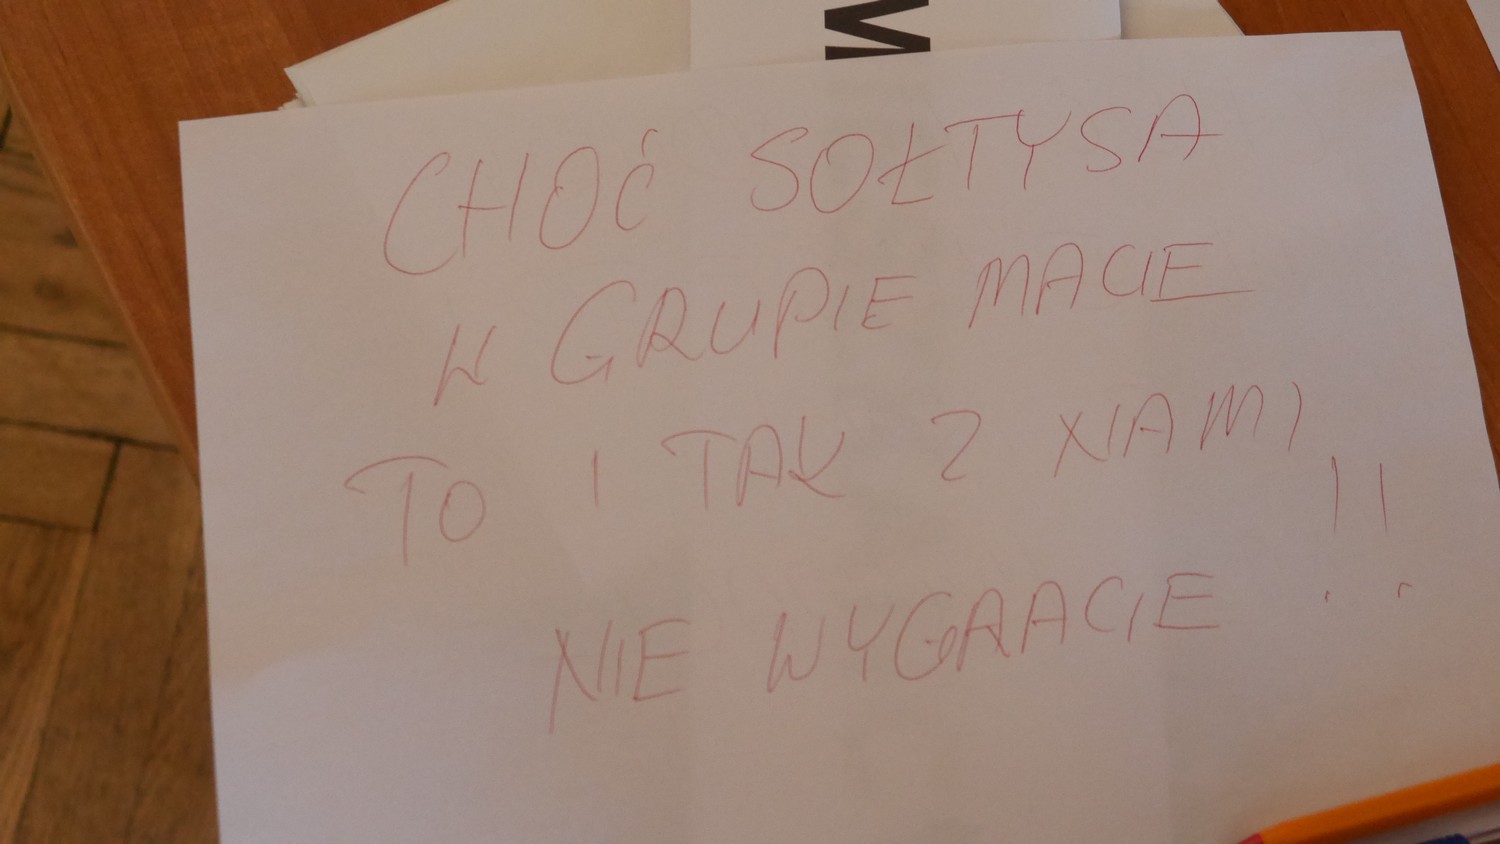 M
CHOĆ SOŁTYSA
W GRUPIE MACIE
TO I TAK Z NAMI
NIE WYGRACIE !!